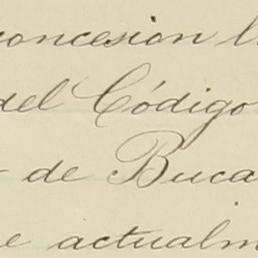 concesión l
del Código
de Buca
e actualm